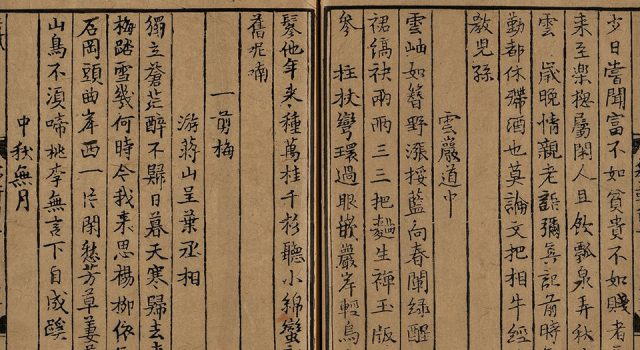 少日嘗聞富不如貧貴不如賤者
来至樂揔屬閑人且飲瓢泉弄秋
雲 歲晚情親老語彌真記前時
動都休殢酒也莫論文把相牛經
教兒孫
雲巖道中
雲岫如簪野漲挼藍向春闌緑醒
裙縞袂兩兩三三把麴生禪玉版
參 拄杖彎環過眼嵌巖岸輕烏
鬂他年来種萬桂千杉聽小綿蠻
舊呢喃
一剪梅
游蔣山呈葉丞相
獨立蒼茫醉不歸日暮天寒歸去
梅踏雪幾何時今我来思楊柳依
石岡頭曲岸西一片閑愁芳草萋
山鳥不湏啼桃李無言下自成蹊
中秋無月